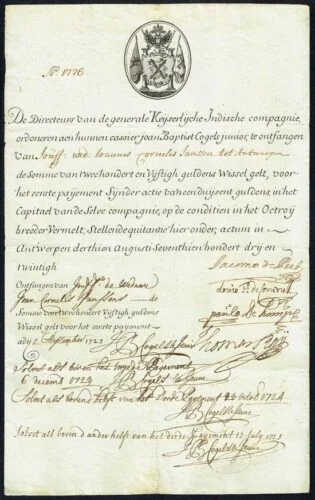 No 1178
De Directeurs van de generale Keijserlijcke Indische compagnie,
ordoneren aen hunnen cassier joan Baptist Cogels junior, te ontfangen
van Jouff: wed: Joannes Cornelis Janssen tot Antwerpen
de Somme van tweehondert en Vijftigh guldens Wissel gelt, voor
het eerste payement Sijnder actie van eenduysent guldens, in het
Capitael van de Selve compagnie, op de conditien in het Octroij
breeder Vermelt, Stellende quitantie hier onder, actum in
Antwerpen derthien Augusti Seventhienhondert drij en
twintigh
Ontfangen van de weduwe
Jean Cornelis Janssens de
Somme voor tweehondert Vijftigh guldens
Wissel gelt voor het eerste payement
ady 2 September 1723
JB Cogels de Jeune
Solvit als boven het tweede Payement
6 decemb 1723
JB Cogels de Jeune
Solvit als boven d'helft van het derde Payement 23 octob 1724
JB Cogels de Jeune
Solvit als boven d'ander helft van het derde Payement 12 July 1725
JB Cogels de Jeune